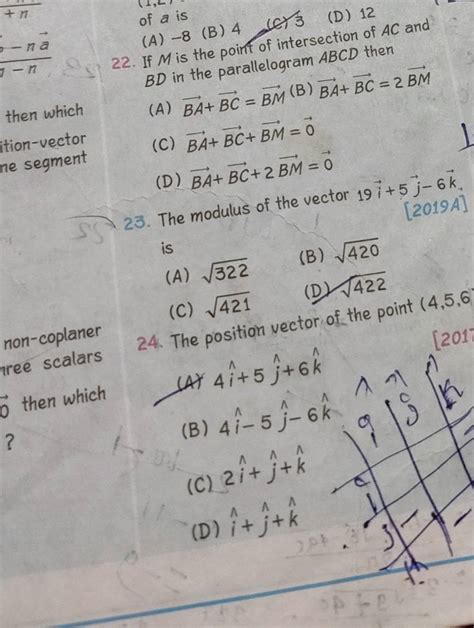 +n
→ - n a→
1 - n
then which
ition-vector
ne segment
non-coplaner
hree scalars
0→ then which
?
of a is
(A) -8 (B) 4 (C) 3 (D) 12
22. If M is the point of intersection of AC and
BD in the parallelogram ABCD then
(A) BA→ + BC→ = BM→ (B) BA→ + BC→ = 2 BM→
(C) BA→ + BC→ + BM→ = 0→
(D) BA→ + BC→ + 2 BM→ = 0→
23. The modulus of the vector 19 i→ + 5 j→ - 6 k→
is [2019A]
(A) √322 (B) √420
(C) √421 (D) √422
24. The position vector of the point (4,5,6
[201
(A) 4 î + 5 ĵ + 6 k̂
(B) 4 î - 5 ĵ - 6 k̂
(C) 2 î + ĵ + k̂
(D) î + ĵ + k̂